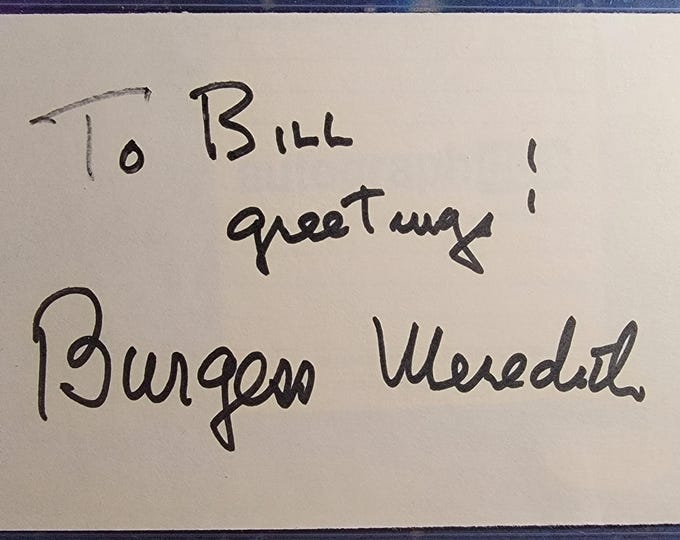 To Bill
greetings!
Burgess Meredith